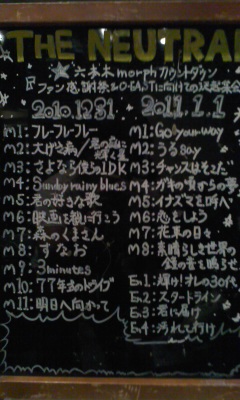 THE NEUTRAL
六本木morphカウントダウン
ファン感謝祭&O-EAST
2010.12.31
M1:フレ-フレ-フレ-
M2:大げさ森/
M3:さよなら僕らの1DK
M4:Sunday rainy blues
M5:君の好きな歌
M6:映画を観に行こう
M7:森のくまさん
M8:すなお
M9:3minutes
M10:77年去のドライブ
M11:明日へ向かって
2011.1.1
M1:Go your way
M2:うるsay
M3:チャンスはそこだ
M4:ガキの頃からの夢
M5:イナズマをDIVEへ
M6:恋をしよう
M7:花東の日々
M8:素晴らしき世界の
鐘の音を鳴らせ
En1:輝け!オレの30代
En2:スタートライン
En3:君に届け
En4:汚れて行け